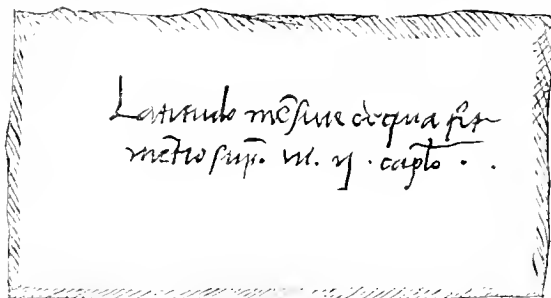 Latitudo mēsure de qua fit
mētio sup̄. in. ij . capło . .